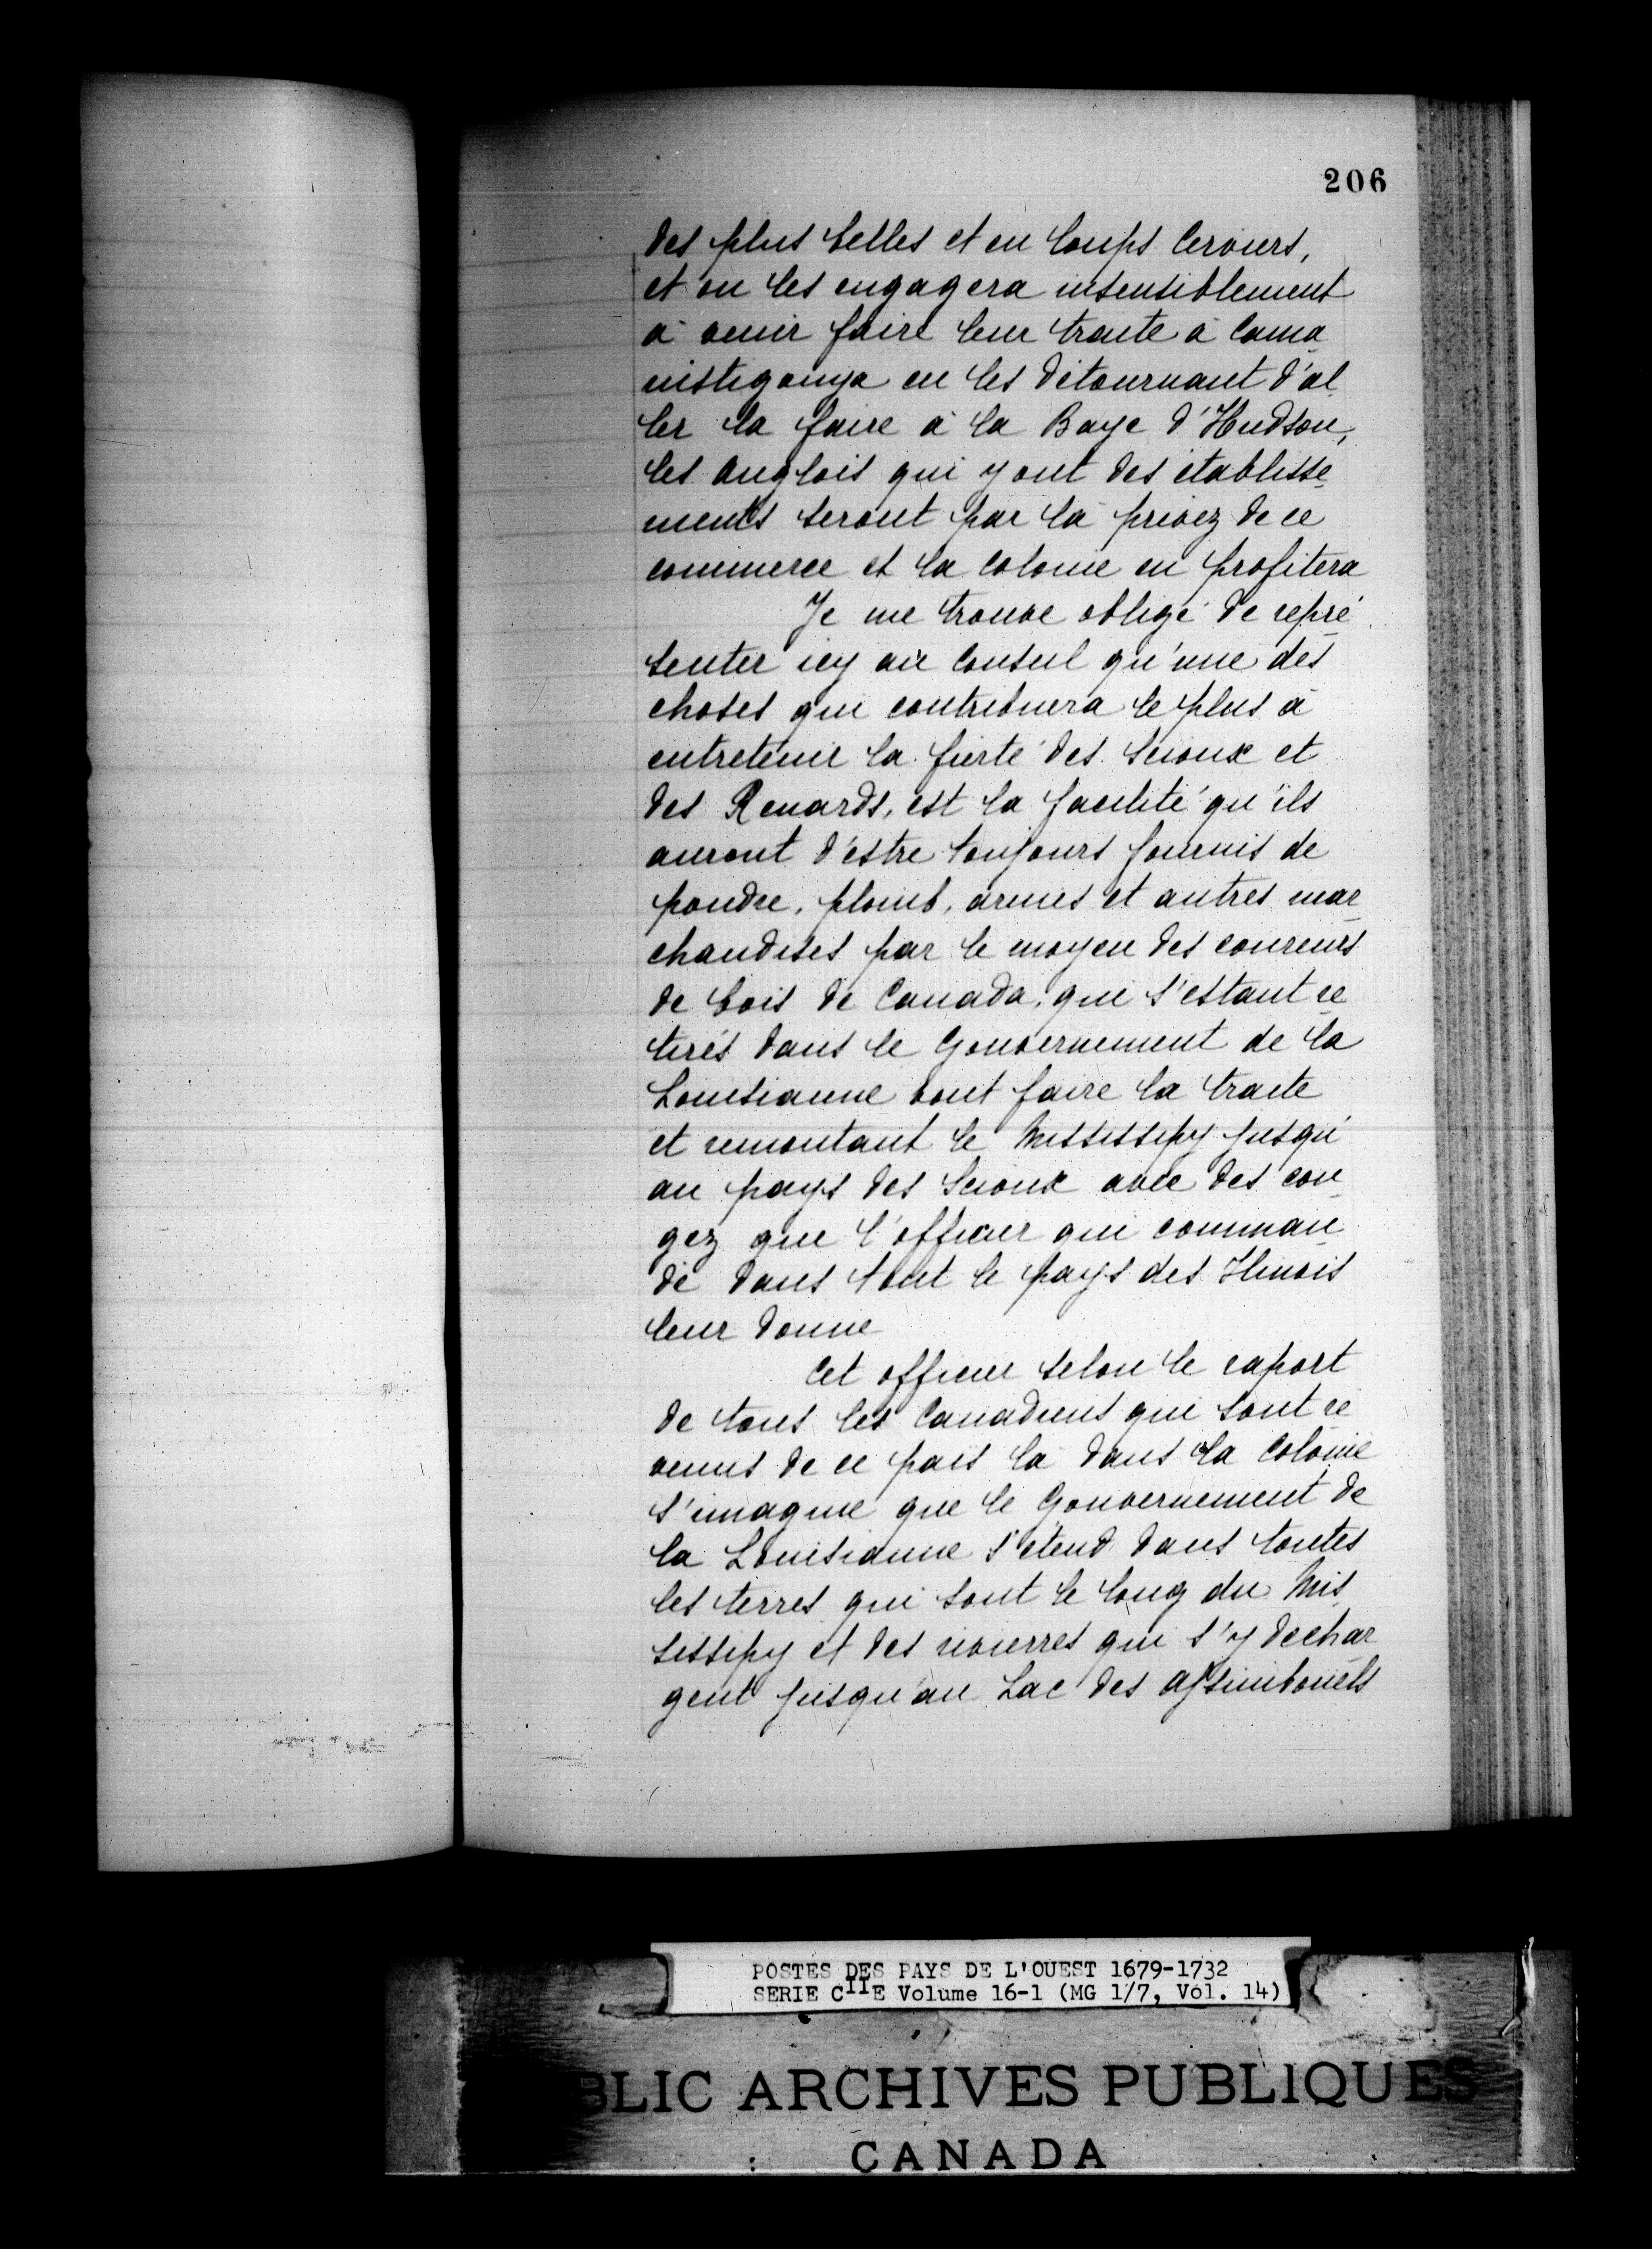 206
des plus belles et en loups cerviers,
et on les engagera insensiblement
à venir faire leur traite à Cama
nistigouya en les détournant d'al
ler la faire à la Baye d'Hudson,
les anglois qui y ont des établisse
ments seront par là privez de ce
commerce et la colonie en profitera
Je me trouve obligé de repré
senter icy au Conseil qu'une des
choses qui contribuera le plus à
entretenir la fierté des Scioux et
des Renards, est la facilité qu'ils
auront d'estre toujours fournis de
poudre, plomb, armes et autres mar
chandises par le moyen des coureurs
de bois de Canada, qui s'estant re
tirés dans le Gouvernement de la
Louisianne vont faire la traite
et remontant le Mississipy jusqu'
au pays des Scioux avec des con
gez que l'officier qui comman
de dans tout le pays des Ilinois
leur donne
Cet officier selon le raport
de tous les Canadiens qui sont re
venus de ce païs là dans la Colonie
s'imagine que le Gouvernement de
la Louisianne s'étend dans toutes
les terres qui sont le long du Mis
sissipy et des rivierres qui s'y dechar
gent jusqu'au Lac des assinibouels
POSTES DES PAYS DE L'OUEST 1679-1732
SERIE CIIE Volume 16-1 (MG 1/7, Vol. 14)
BLIC ARCHIVES PUBLIQUES
CANADA